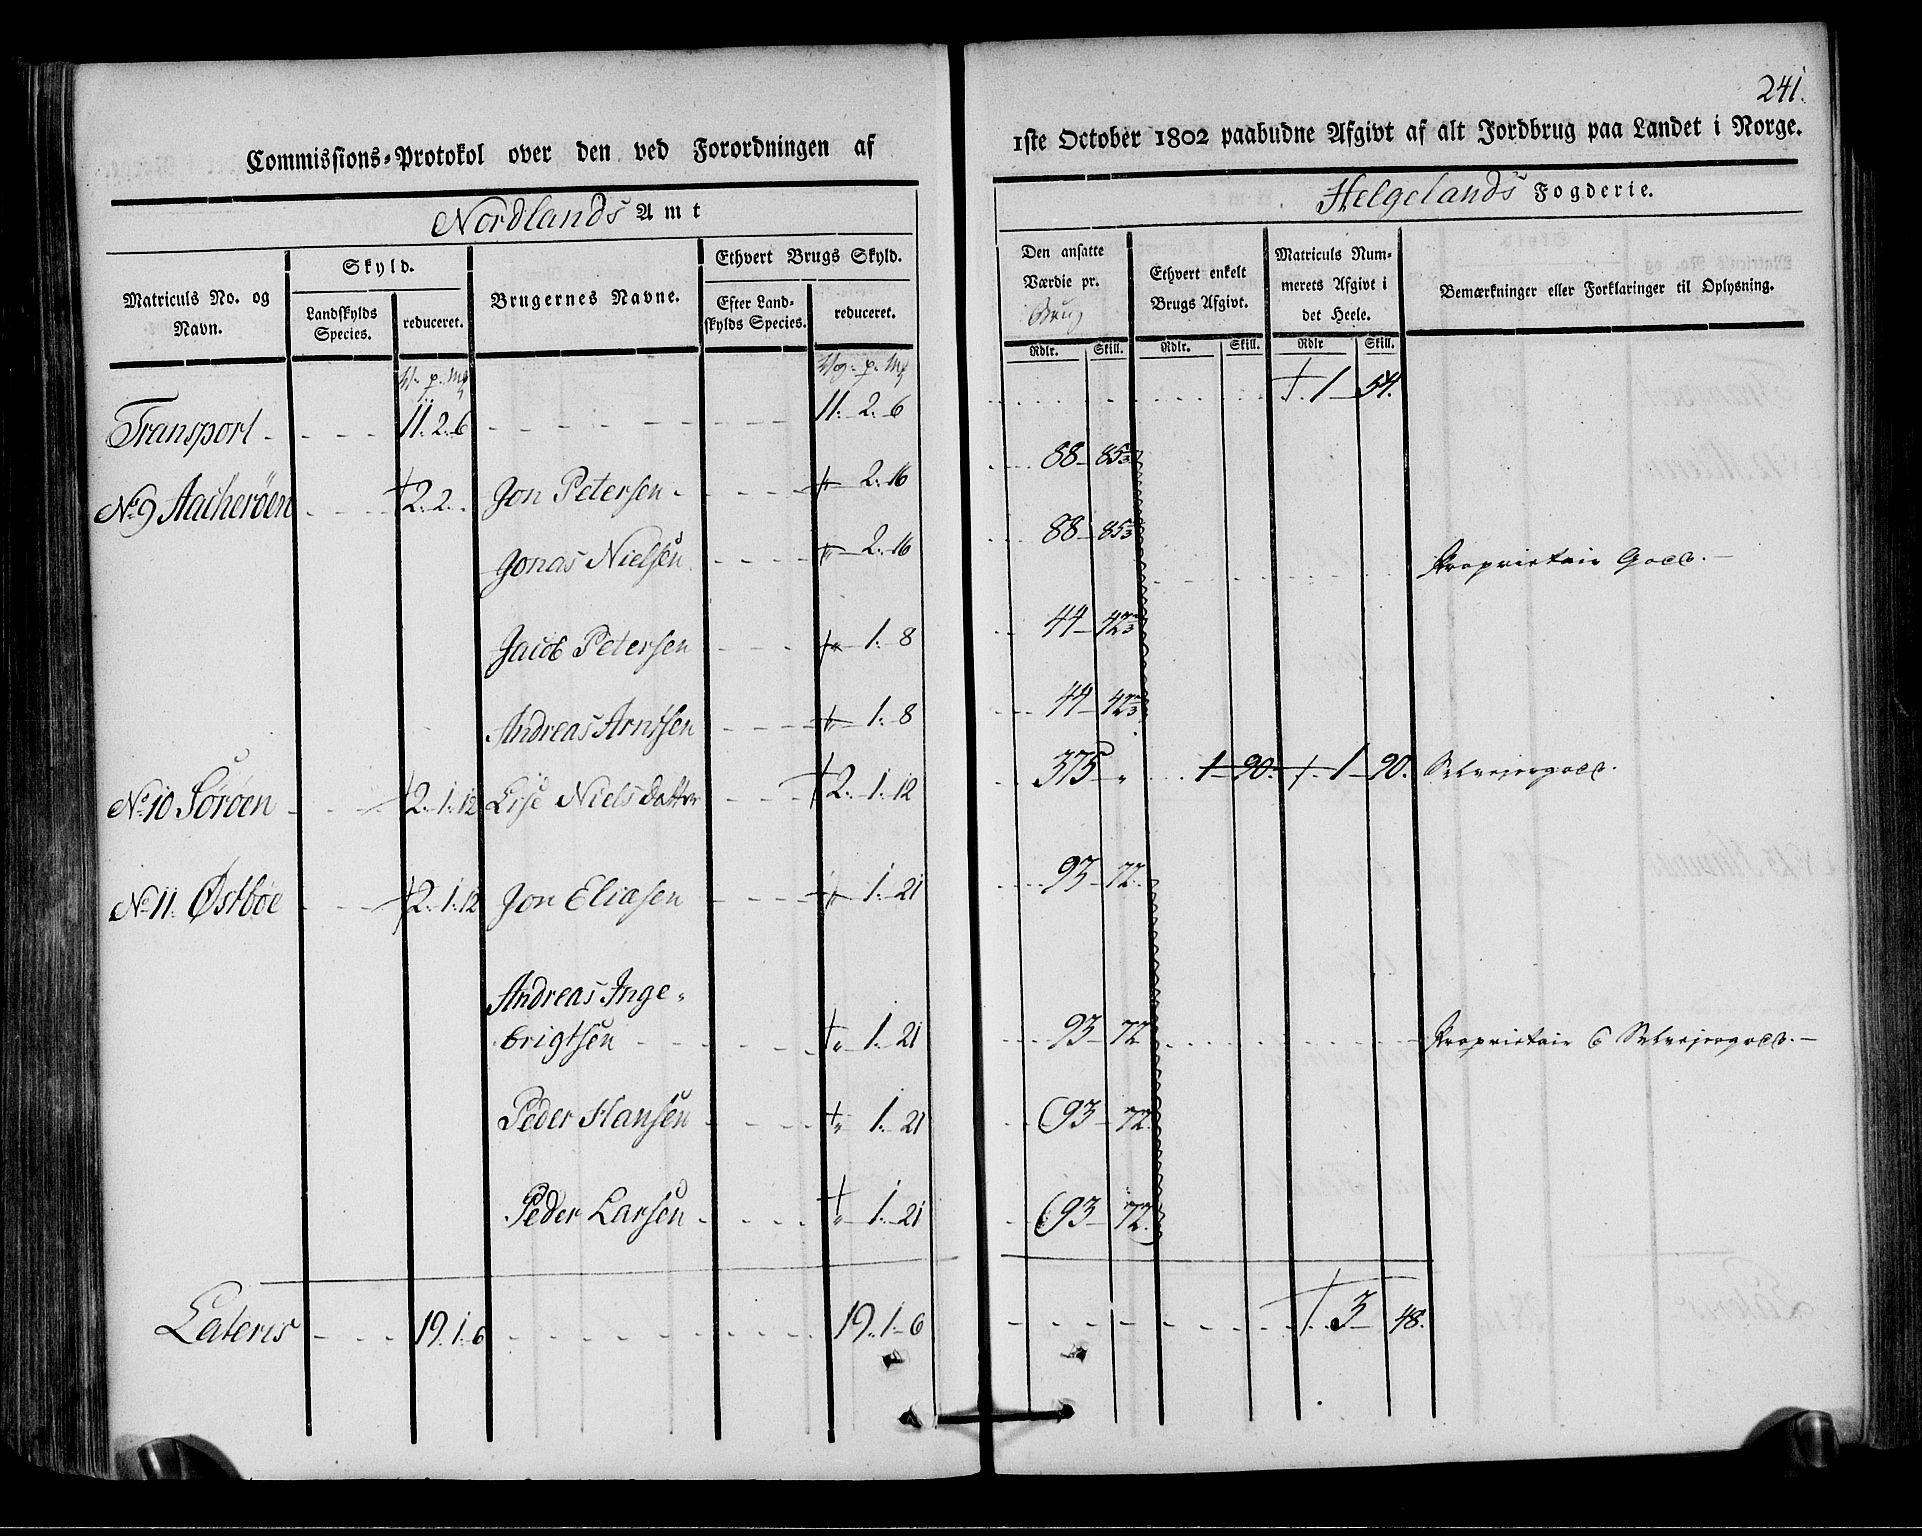 241.
Commissions-Protokol over den ved Forordningen af
1ste October 1802 paabudne Afgivt af alt Jordbrug paa Landet i Norge.
Nordlands Amt
Helgelands Fogderie.
Matriculs No. og Navn.
Skyld.
Landskylds Species.
reduceret.
Brugernes Navne.
Ethvert Brugs Skyld.
Efter Landskylds Species.
reduceret.
Den ansatte Værdie pr. Brug
Ethvert enkelt Brugs Afgivt.
Matriculs Nummerets Afgivt i det Heele.
Bemærkninger eller Forklaringer til Oplysning.
Rdlr. Skill. Rdlr. Skill. Rdlr Skill.
Transport 11. 2. 6 11. 2. 6 1 54.
No 9 Aacherøen 2. 2. Jon Petersen 2. 16 88 85 1/3
Jonas Nielsen 2. 16 88 85 1/3 Proprietair Gods.
Jacob Petersen 1. 8 44 42 2/3
Andreas Arntsen 1. 8 44 42 2/3
No 10 Sørøen 2. 1. 12 Lise Nielsdatter 2. 1. 12 375 " 1 90. 1 90. Selveiergods.
No 11. Østbøe 2. 1. 12 Jon Eliasen " 1. 21 93 72.
Andreas Inge-
brigtsen " 1. 21 93 72 Proprietair & Selveiergods.
Peder Hansen " 1. 21 93 72.
Peder Larsen " 1. 21 93 72.
Lateris 19. 1. 6 19. 1. 6 3 48.